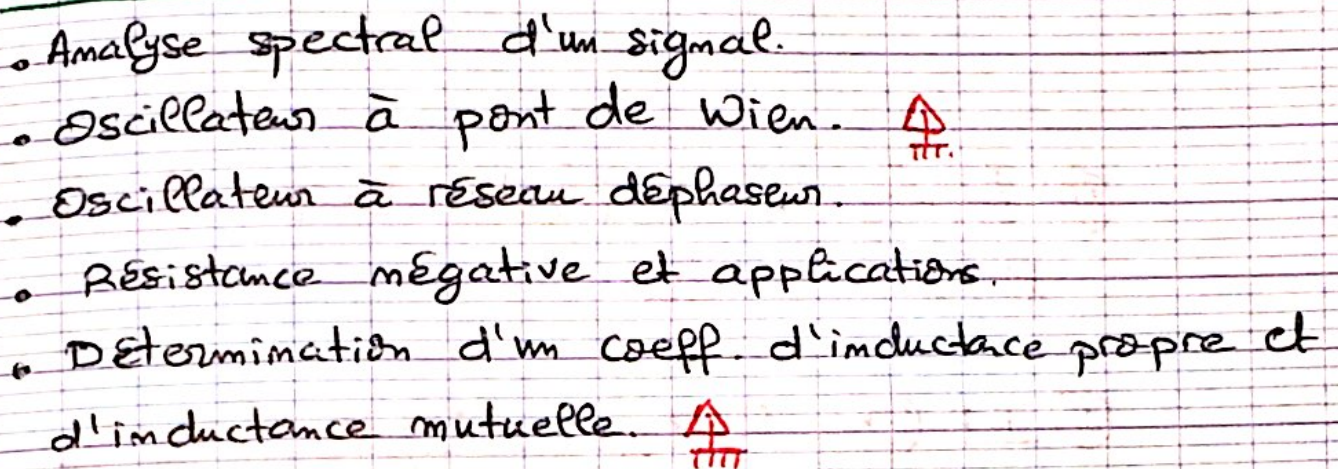 . Analyse spectral d'un signal.
. Oscillateur à pont de Wien.
. Oscillateur à réseau déphaseur.
. Résistance négative et applications.
. Détermination d'un coeff. d'inductance propre et
d'inductance mutuelle.